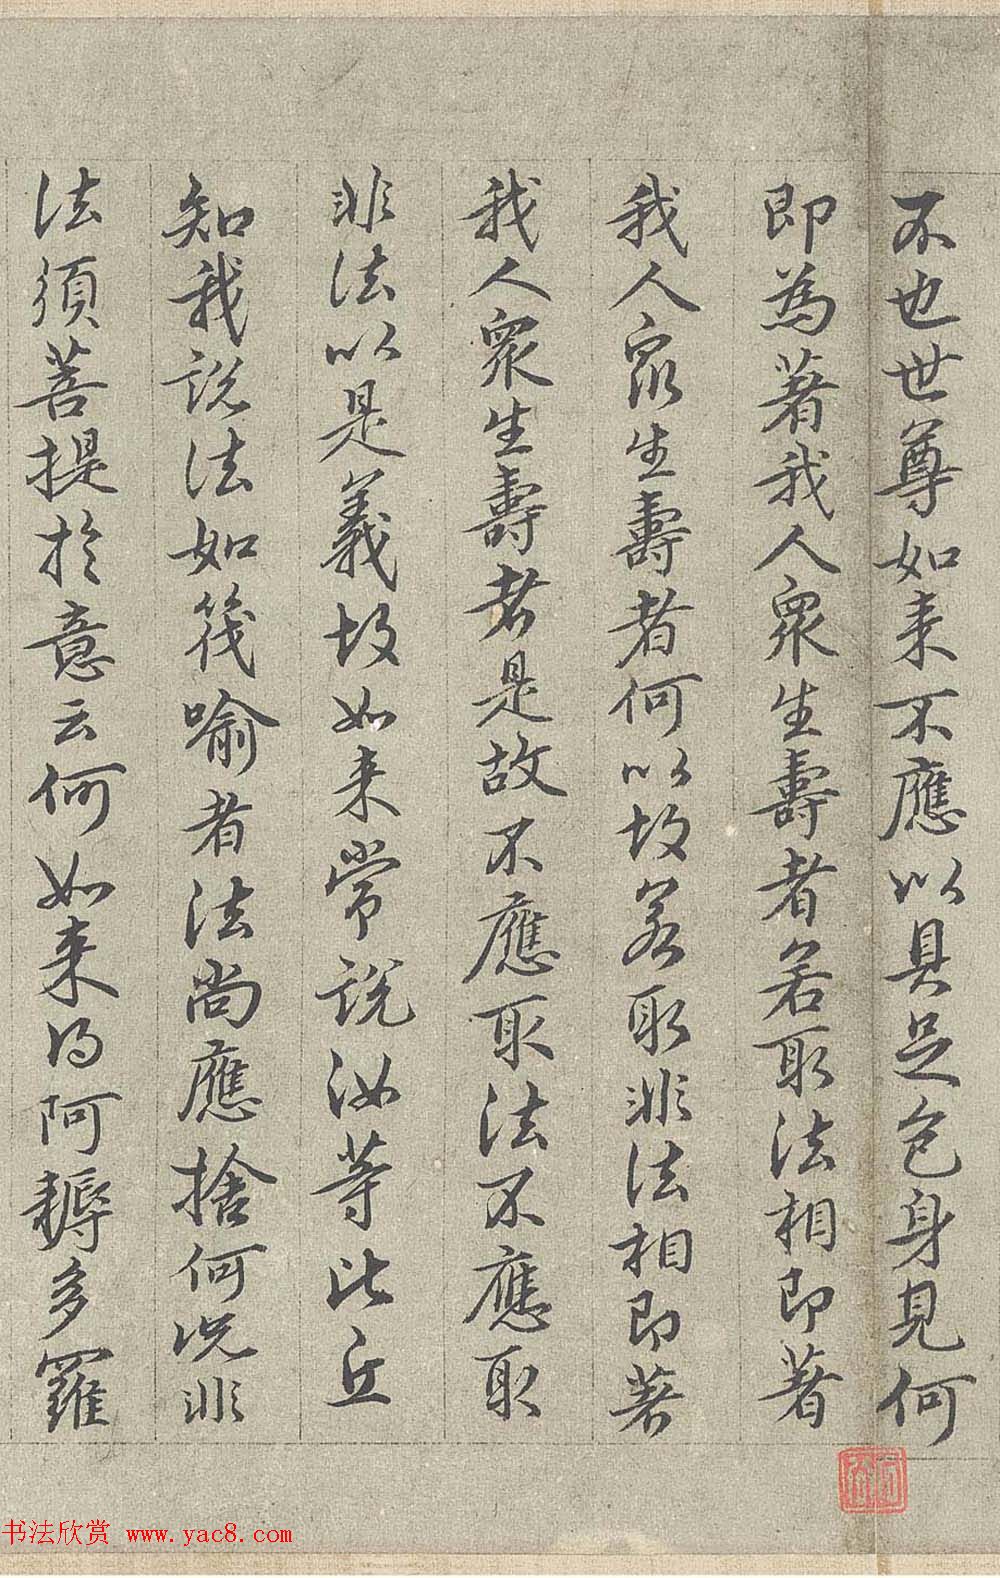 不也世尊如来不應以具足色身見何
即為著我人衆生壽者若取法相即著
我人衆生壽者何以故若取非法相即著
我人衆生壽者是故不應取法不應取
非法以是義故如来常說汝等比丘
知我說法如筏喻者法尚應捨何況非
法須菩提於意云何如来得阿耨多羅
书法欣赏 www.yac8.com